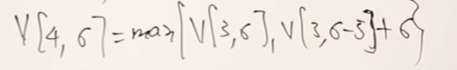 V[4, 6] = max{V[3,6], V[3,6-5]+6}